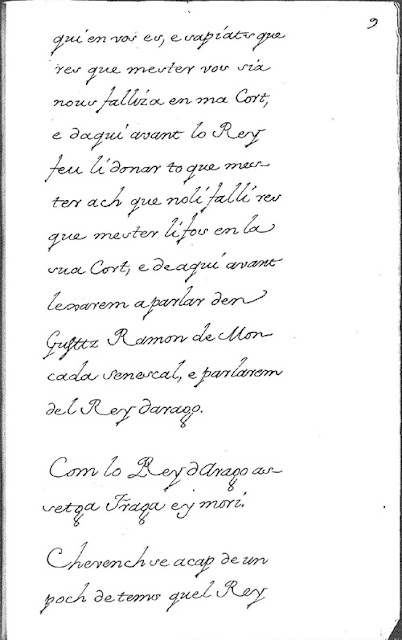 9
qui en vos es, e sapiats que
res que mester vos sia
nous fallira en ma Cort,
e daqui avant lo Rey
feu li donar to que mes
ter ach que noli falli res
que mester li fos en la
sua Cort, e de aqui avant
lexarem a parlar den
Ramon de Mon
cada senescal, e parlarem
del Rey darago.
Com lo Rey dArago as
setga Fraga ey mori.
Esdevench se a cap de un
poch de temps quel Rey